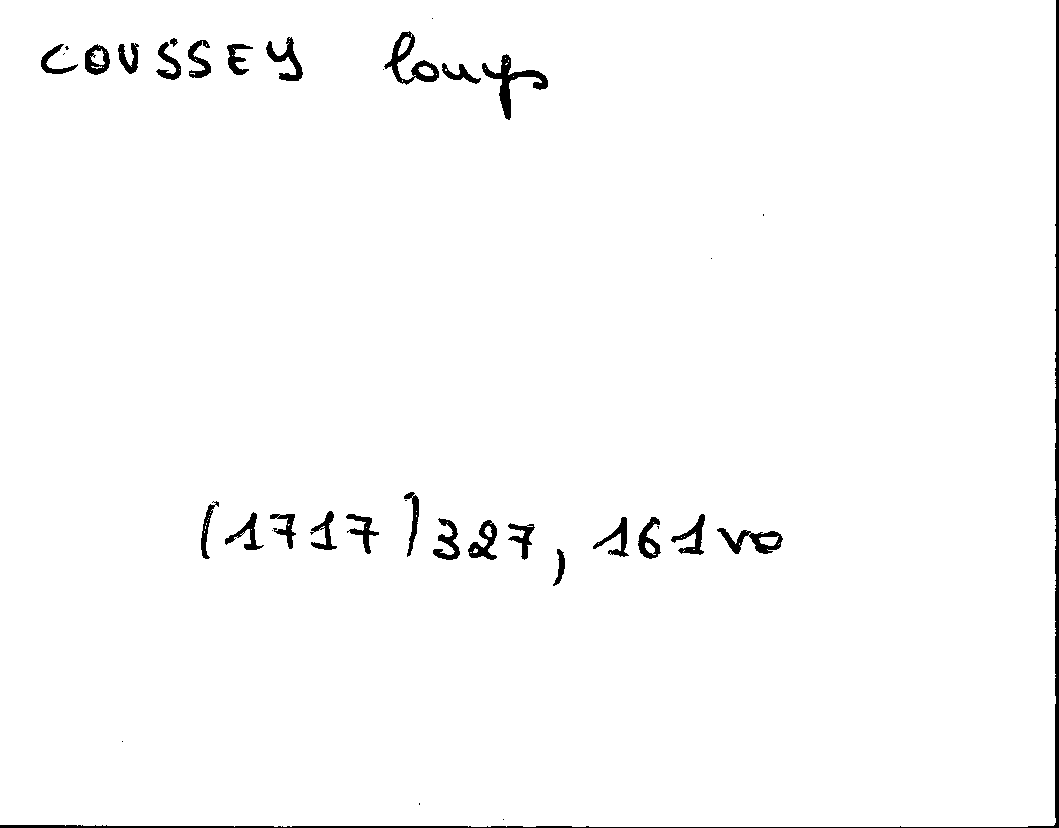 COUSSEY louys
(1717) 327, 161vo